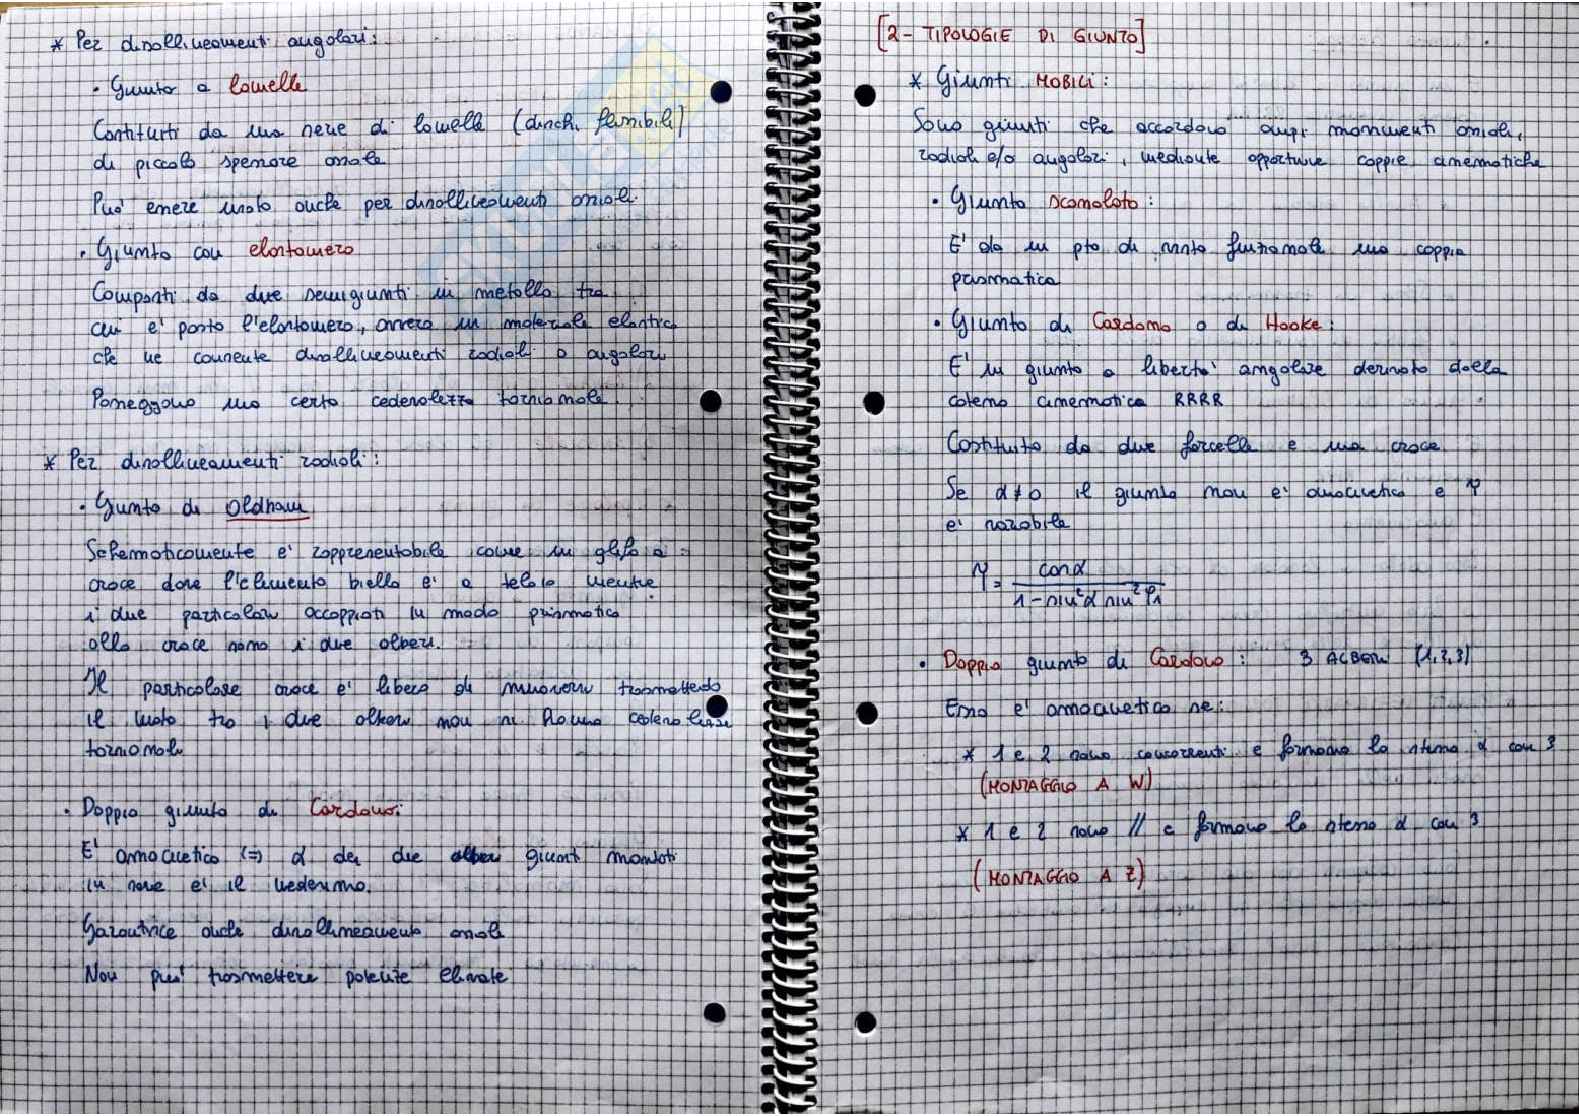 * Per disallineamenti angolari:
• Giunto a lamelle
Costituiti da una serie di lamelle (dischi flessibili)
di piccolo spessore assiale
Puo' essere usato anche per disallineamenti assiali.
• Giunto con elastomero
Composti da due semigiunti in metallo tra
cui e' posto l'elastomero, ovvero un materiale elastico
che ne consente disallineamenti radiali o angolari
Posseggono una certa cedevolezza torsionale.
* Per disallineamenti radiali:
• Giunto di Oldham
Schematicamente e' rappresentabile come un glifo a
croce dove l'elemento biella e' a telaio mentre
i due particolari accoppiati in modo prismatico
alla croce sono i due alberi.
Il particolare croce e' libero di muoversi trasmettendo
il moto tra i due alberi non si hanno cedevolezze
torsionali
• Doppio giunto di Cardano:
E' omocinetico (=) α dei due giunti montati
in serie e' il medesimo.
Garantisce anche disallineamento assiale
Non puo' trasmettere potenze elevate
[2- TIPOLOGIE DI GIUNTO]
* Giunti MOBILI:
Sono giunti che accordano ampi movimenti assiali,
radiali e/o angolari, mediante opportune coppie cinematiche
• Giunto scanalato:
E' da un pto di vista funzionale una coppia
prismatica
• Giunto di Cardano o di Hooke:
E' un giunto a liberta' angolare derivato dalla
catena cinematica RRRR
Costituito da due forcelle e una croce
Se α≠0 il giunto non e' omocinetico e τ
e' variabile
τ = cosα / 1-sin²α sin²φ₁
• Doppio giunto di Cardano: 3 ALBERI (1,2,3)
Esso e' omocinetico se:
* 1 e 2 sono concorrenti e formano lo stesso α con 3
(MONTAGGIO A W)
* 1 e 2 sono // e formano lo stesso α con 3
(MONTAGGIO A Z)